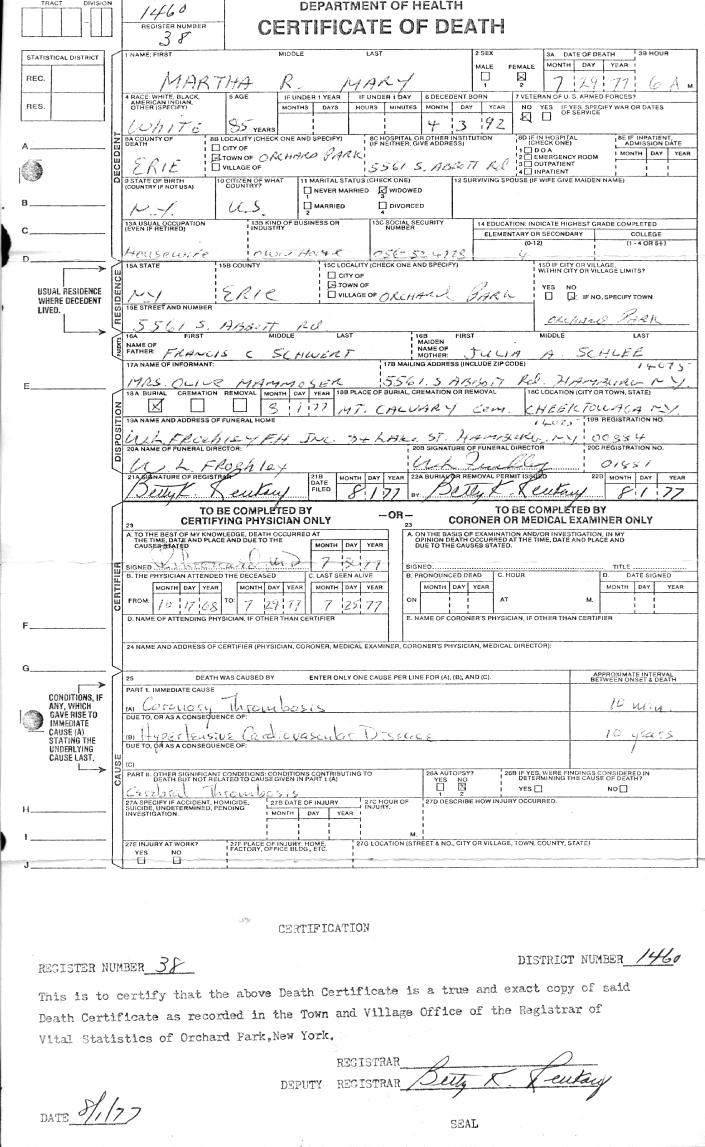 DEPARTMENT OF HEALTH
CERTIFICATE OF DEATH
TRACT DIVISION
1460
REGISTER NUMBER
38
STATISTICAL DISTRICT
REC.
RES.
A
B
C
D
USUAL RESIDENCE WHERE DECEDENT LIVED.
E
F
G
CONDITIONS, IF ANY, WHICH GAVE RISE TO IMMEDIATE CAUSE (A) STATING THE UNDERLYING CAUSE LAST.
H
I
J
DECEDENT
1 NAME: FIRST MIDDLE LAST
MARTHA R. MARY
2 SEX MALE 1 FEMALE 2
3A DATE OF DEATH MONTH DAY YEAR
7 29 77
3B HOUR
6 A M.
4 RACE: WHITE, BLACK, AMERICAN INDIAN, OTHER (SPECIFY)
WHITE
5 AGE
85 YEARS
IF UNDER 1 YEAR MONTHS DAYS
IF UNDER 1 DAY HOURS MINUTES
6 DECEDENT BORN MONTH DAY YEAR
4 3 92
7 VETERAN OF U.S. ARMED FORCES?
NO YES IF YES, SPECIFY WAR OR DATES OF SERVICE
8A COUNTY OF DEATH
ERIE
8B LOCALITY (CHECK ONE AND SPECIFY)
CITY OF
TOWN OF ORCHARD PARK
VILLAGE OF
8C HOSPITAL OR OTHER INSTITUTION (IF NEITHER, GIVE ADDRESS)
5561 S. ABBOTT Rd
8D IF IN HOSPITAL (CHECK ONE)
1 D O A
2 EMERGENCY ROOM
3 OUTPATIENT
4 INPATIENT
8E IF INPATIENT, ADMISSION DATE
MONTH DAY YEAR
9 STATE OF BIRTH (COUNTRY IF NOT USA)
N.Y.
10 CITIZEN OF WHAT COUNTRY?
U.S.
11 MARITAL STATUS (CHECK ONE)
NEVER MARRIED 1 WIDOWED 3
MARRIED 2 DIVORCED 4
12 SURVIVING SPOUSE (IF WIFE GIVE MAIDEN NAME)
13A USUAL OCCUPATION (EVEN IF RETIRED)
Housewife
13B KIND OF BUSINESS OR INDUSTRY
Own Home
13C SOCIAL SECURITY NUMBER
14 EDUCATION: INDICATE HIGHEST GRADE COMPLETED
ELEMENTARY OR SECONDARY (0-12) COLLEGE (1 - 4 OR 5+)
RESIDENCE
15A STATE
NY
15B COUNTY
ERIE
15C LOCALITY (CHECK ONE AND SPECIFY)
CITY OF
TOWN OF
VILLAGE OF ORCHARD PARK
15D IF CITY OR VILLAGE, WITHIN CITY OR VILLAGE LIMITS?
YES NO IF NO, SPECIFY TOWN
ORCHARD PARK
15E STREET AND NUMBER
5561 S. ABBOTT Rd
16A FIRST MIDDLE LAST
NAME OF FATHER: FRANCIS C SCHWERT
16B FIRST MIDDLE LAST
MAIDEN NAME OF MOTHER: JULIA A. SCHLEE
17A NAME OF INFORMANT
MRS. OLIVE MAMMOSER
17B MAILING ADDRESS (INCLUDE ZIP CODE)
14075
5561 S ABBOTT Rd. HAMBURG N.Y.
DISPOSITION
18A BURIAL CREMATION REMOVAL MONTH DAY YEAR
8 1 77
18B PLACE OF BURIAL, CREMATION OR REMOVAL
MT. CALVARY CEM.
18C LOCATION (CITY OR TOWN, STATE)
CHEEKTOWAGA N.Y.
19A NAME AND ADDRESS OF FUNERAL HOME
14075
34 LAKE ST. HAMBURG, NY
19B REGISTRATION NO.
00884
20A NAME OF FUNERAL DIRECTOR:
20B SIGNATURE OF FUNERAL DIRECTOR
20C REGISTRATION NO.
21A SIGNATURE OF REGISTRAR
Betty K.
21B DATE FILED MONTH DAY YEAR
8 1 77
22A BURIAL OR REMOVAL PERMIT ISSUED
BY Betty K.
22B MONTH DAY YEAR
8 1 77
CERTIFIER
TO BE COMPLETED BY CERTIFYING PHYSICIAN ONLY
—OR—
TO BE COMPLETED BY CORONER OR MEDICAL EXAMINER ONLY
23
A. TO THE BEST OF MY KNOWLEDGE, DEATH OCCURRED AT THE TIME, DATE AND PLACE AND DUE TO THE CAUSES STATED
SIGNED
MONTH DAY YEAR
B. THE PHYSICIAN ATTENDED THE DECEASED
MONTH DAY YEAR MONTH DAY YEAR
FROM: 10 17 68 TO: 7 29 77
C. LAST SEEN ALIVE
MONTH DAY YEAR
7 25 77
D. NAME OF ATTENDING PHYSICIAN, IF OTHER THAN CERTIFIER
23
A. ON THE BASIS OF EXAMINATION AND/OR INVESTIGATION, IN MY OPINION DEATH OCCURRED AT THE TIME, DATE AND PLACE AND DUE TO THE CAUSES STATED.
SIGNED TITLE
B. PRONOUNCED DEAD MONTH DAY YEAR
ON
C. HOUR
AT M.
D. DATE SIGNED
MONTH DAY YEAR
E. NAME OF CORONER'S PHYSICIAN, IF OTHER THAN CERTIFIER
24 NAME AND ADDRESS OF CERTIFIER (PHYSICIAN, CORONER, MEDICAL EXAMINER, CORONER'S PHYSICIAN, MEDICAL DIRECTOR):
CAUSE
25 DEATH WAS CAUSED BY ENTER ONLY ONE CAUSE PER LINE FOR (A), (B), AND (C).
APPROXIMATE INTERVAL BETWEEN ONSET & DEATH
PART 1. IMMEDIATE CAUSE
(A) Coronary Thrombosis 10 min.
DUE TO, OR AS A CONSEQUENCE OF:
(B) Hypertensive Cardiovascular Disease 10 years
DUE TO, OR AS A CONSEQUENCE OF:
(C)
PART II. OTHER SIGNIFICANT CONDITIONS: CONDITIONS CONTRIBUTING TO DEATH BUT NOT RELATED TO CAUSE GIVEN IN PART 1 (A)
Cerebral Thrombosis
26A AUTOPSY? YES 1 NO 2
26B IF YES, WERE FINDINGS CONSIDERED IN DETERMINING THE CAUSE OF DEATH?
YES NO
27A SPECIFY IF ACCIDENT, HOMICIDE, SUICIDE, UNDETERMINED, PENDING INVESTIGATION.
27B DATE OF INJURY
MONTH DAY YEAR
27C HOUR OF INJURY.
M.
27D DESCRIBE HOW INJURY OCCURRED.
27E INJURY AT WORK?
YES NO
27F PLACE OF INJURY: HOME, FACTORY, OFFICE BLDG., ETC.
27G LOCATION (STREET & NO., CITY OR VILLAGE, TOWN, COUNTY, STATE)
CERTIFICATION
REGISTER NUMBER 38
DISTRICT NUMBER 1460
This is to certify that the above Death Certificate is a true and exact copy of said
Death Certificate as recorded in the Town and Village Office of the Registrar of
Vital Statistics of Orchard Park,New York.
REGISTRAR
DEPUTY REGISTRAR Betty K.
DATE 8/1/77
SEAL